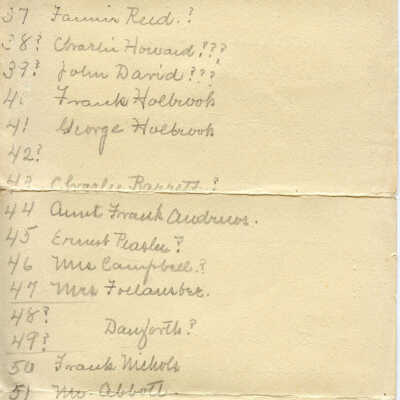 37 Fannie Reed.?
38? Charlie Howard???
39? John David???
40 Frank Holbrook
41 George Holbrook
42?
43 Charlie Barrett?
44 Aunt Frank Andrews.
45 Ernest Peaslee?
46 Mrs Campbell?
47 Mrs Follansbee.
48?
Danforth?
49?
50 Frank Nichols
51 Mr. Abbott.